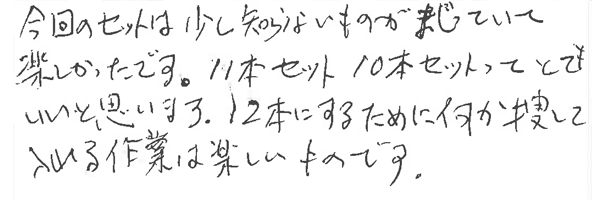 今回のセットは少し知らないものがまじていて
楽しかったです。11本セット10本セットってとても
いいと思います。12本にするために何か捜して
入れる作業は楽しいものです。